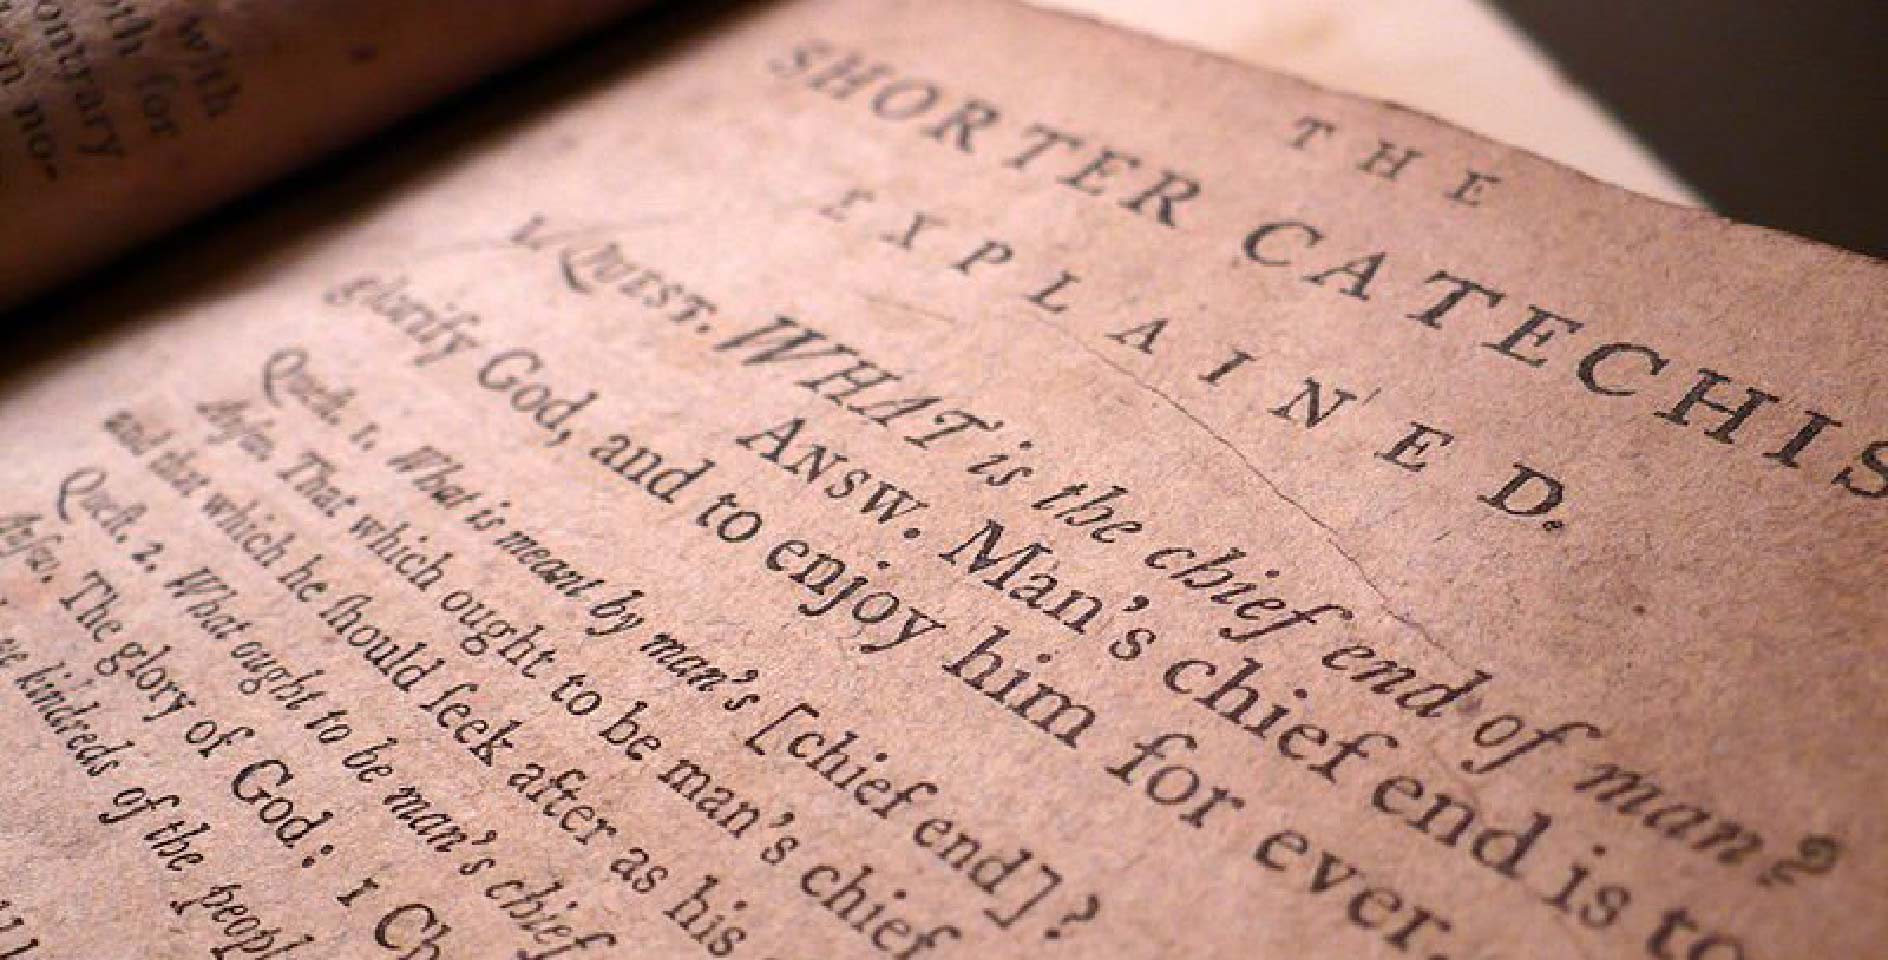 with
oth for
ontrary
en no-
THE
SHORTER CATECHIS
EXPLAINED.
1. QUEST. WHAT is the chief end of man?
ANSW. Man's chief end is to
glorify God, and to enjoy him for ever.
Queſt. 1. What is meant by man's [chief end]?
Anſw. That which ought to be man's chief
and that which he ſhould ſeek after as his
Queſt. 2. What ought to be man's chief
Anſw. The glory of God: 1 Ch
ye kindreds of the peopl